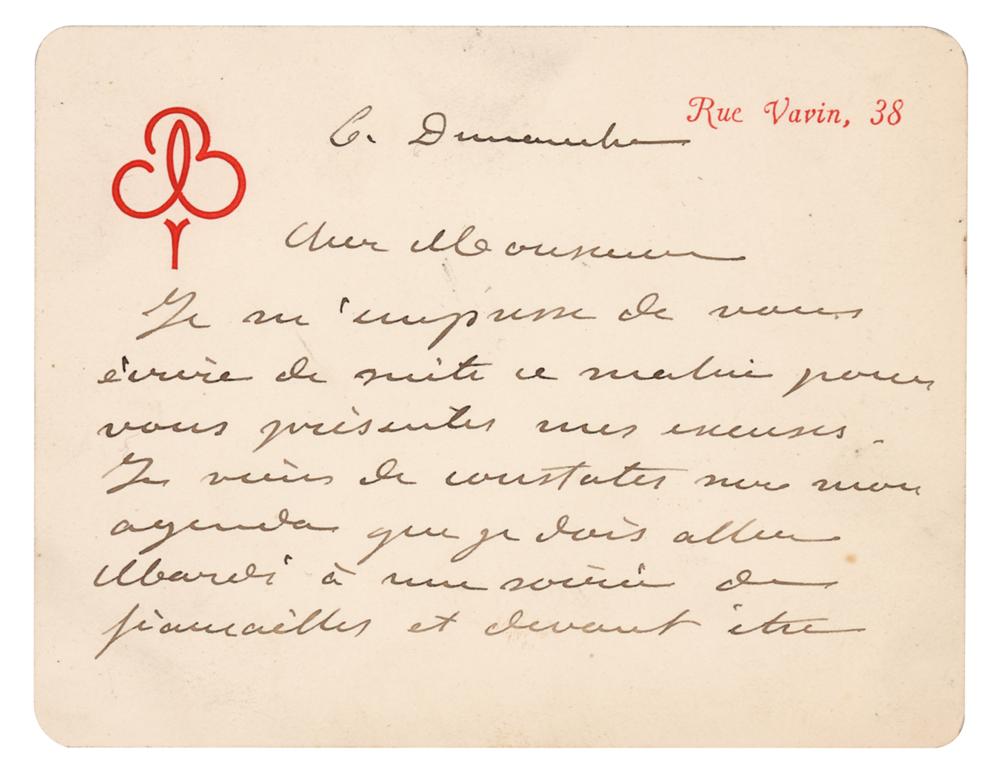 Rue Vavin, 38
Ce Dimanche
Cher Monsieur
Je m'empresse de vous
écrire de suite ce matin pour
vous présenter mes excuses.
Je viens de constater sur mon
agenda que je dois aller
Mardi à une soirée de
fiançailles et devant être